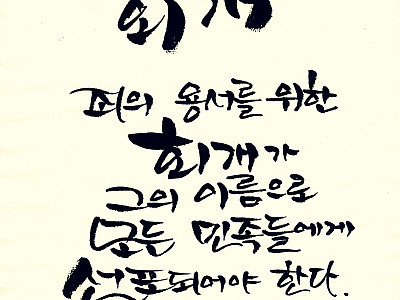 회개
죄의 용서를 위한
회개가
그의 이름으로
모든 민족들에게
선포되어야 한다.